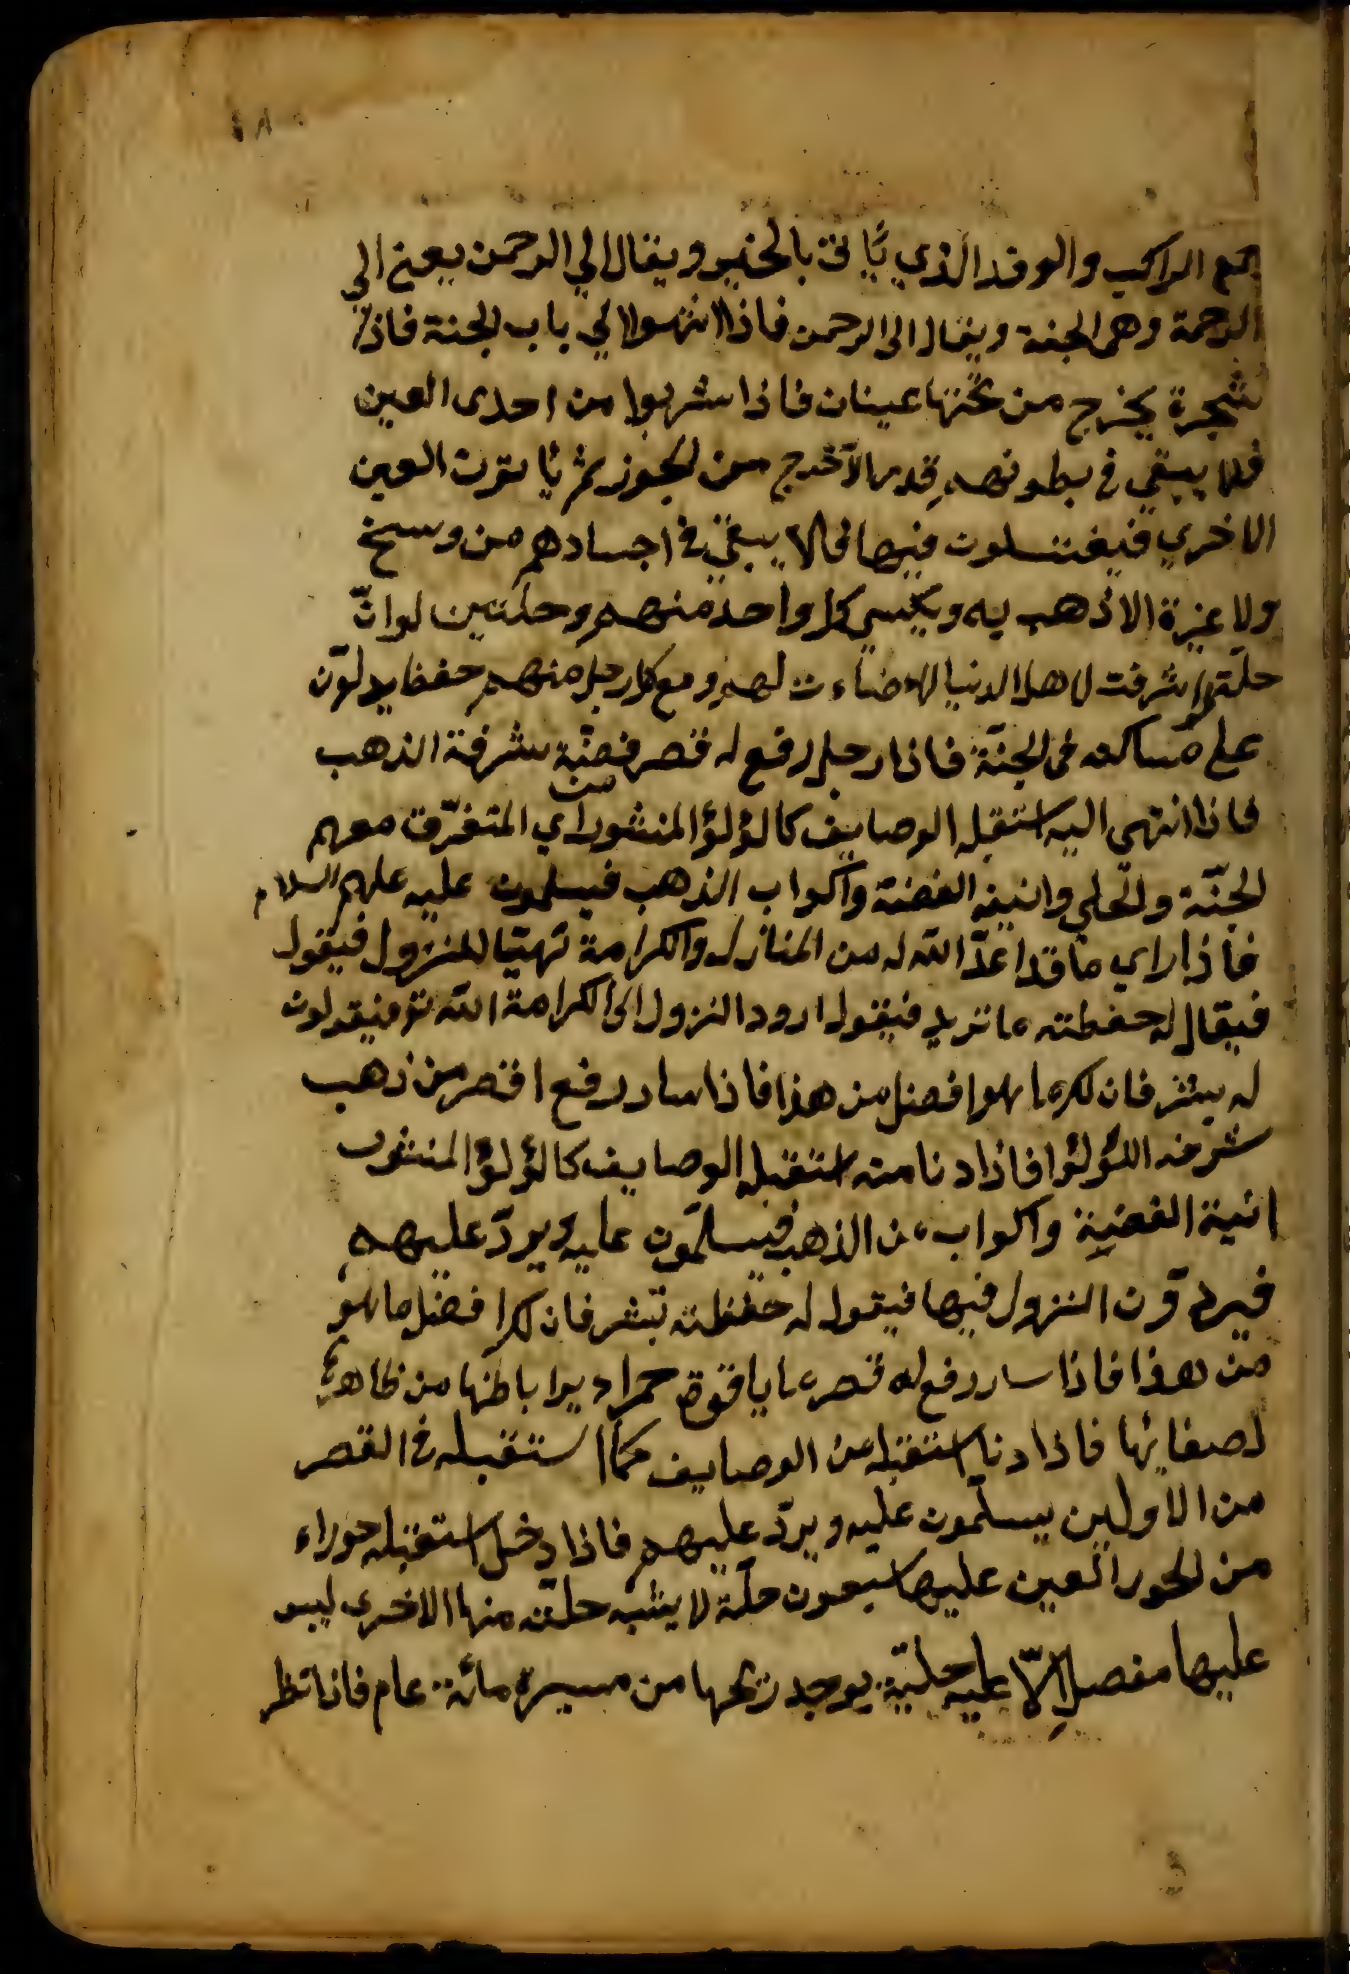 جمع الراكب والوفد الذي يأتي بالخير ويقال الي الرحمن يعني الي
الرحمة وهى الجنة ويقال الى الرحمن فاذا انتهوا الي باب الجنة فاذا
شجرة يخرج من تحتها عينان فاذا شربوا من احدى العين
فلا يبقي في بطونهم قدر الا خرج من ثم يأتون العين
الاخري فيغتسلون فيها فلا يبقي في اجسادهم من وسخ
ولا غيرة الا ذهب به ويكسي كل واحد منهم وحلتين لوانّ
حلّة اشرفت لاهل الدنيا لاضاءت لهم ومع كل رجل منهم حفظا يدلوّن
علي مساكنه في الجنّة فاذا رجل رفع له قصر فضّة شرفة الذهب
فاذا انتهى اليه استقبله الوصايف كالؤلؤ المنشور اي المتفرّق معهم
الجنّة والحلي وانية الفضة واكواب الذهب فيسلمون عليه عليهم السلام
فاذا راي ما قد اعدّ الله له من المنازل والكرامة تهيّا للنزول فيقول
فيقال له حفظته ما تريد فيقول ارود النزول الى الكرامة الله فيقولون
له يبشر فان لك ما هو افضل من هذا فاذا سار رفع قصر من ذهب
شرفه اللؤلؤا فاذا دنا منه استقبله الوصايف كالؤلؤ المنشور
انية الفضة واكواب من الذهب فيسلّمون عليه ويردّ عليهم
فيردّون النزول فيها فيقول له حفظته تبشر فان لك افضل ما هو
من هذا فاذا سار رفع له قصر يا ياقوة حمراء يرا باطنها من ظاهرها
لصفائها فاذا دنا استقبله من الوصايف كما استقبله في القصر
من الاولين يسلّمون عليه ويردّ عليهم فاذا دخل استقبله حوراء
من الحور العين عليها سبعون حلّة لا يشبه حلّته منها الاخرى ليس
عليها مفصل الاّ عليه حلية يوجد ريحها من مسيرة مائة عام فاذا نظر